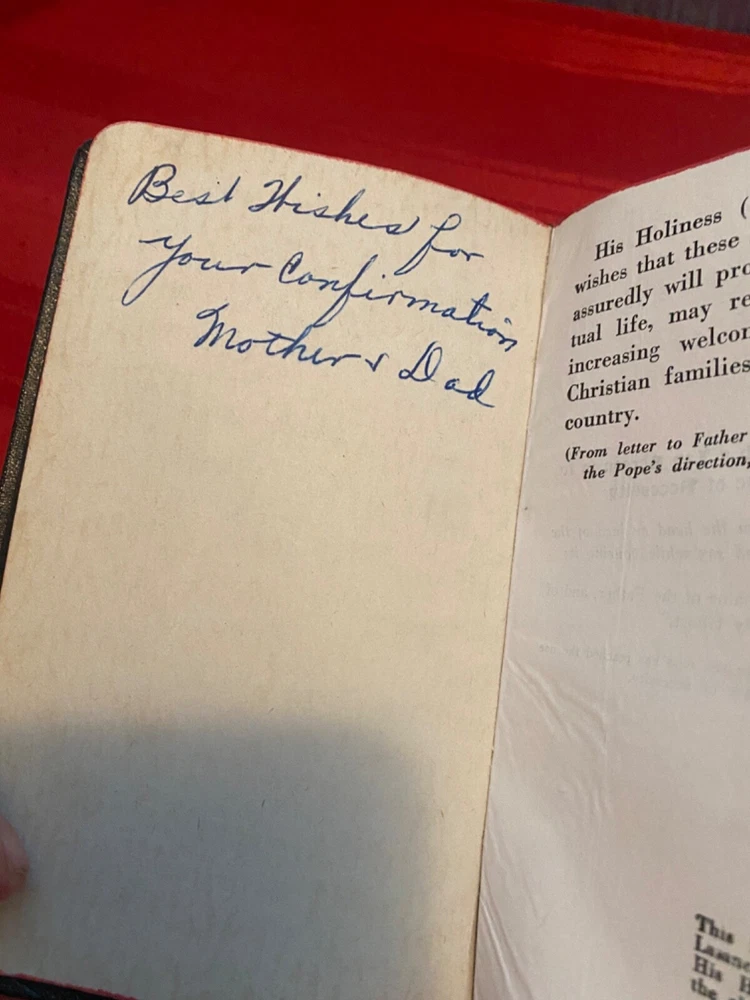 Best Wishes for
Your Confirmation
Mother & Dad
His Holiness (
wishes that these
assuredly will pro
tual life, may re
increasing welcom
Christian families
country.
(From letter to Father
the Pope's direction,
This
His H
the